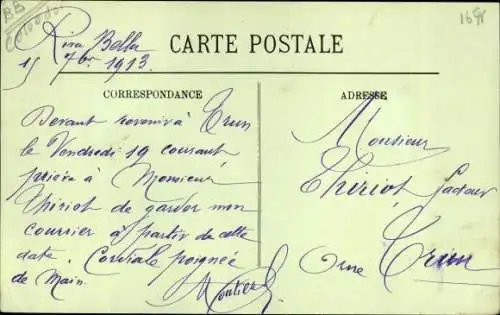 BB
Calvados
16 98
Riva Bella
15 7bre 1913
CARTE POSTALE
CORRESPONDANCE
ADRESSE
Devant revenir à Trun
le Vendredi 19 courant
prière à Monsieur
Thiriot de garder mon
courrier à partir de cette
date. Cordiale poignée
de Main.
Monsieur
Thiriot facteur
Trun
Orne